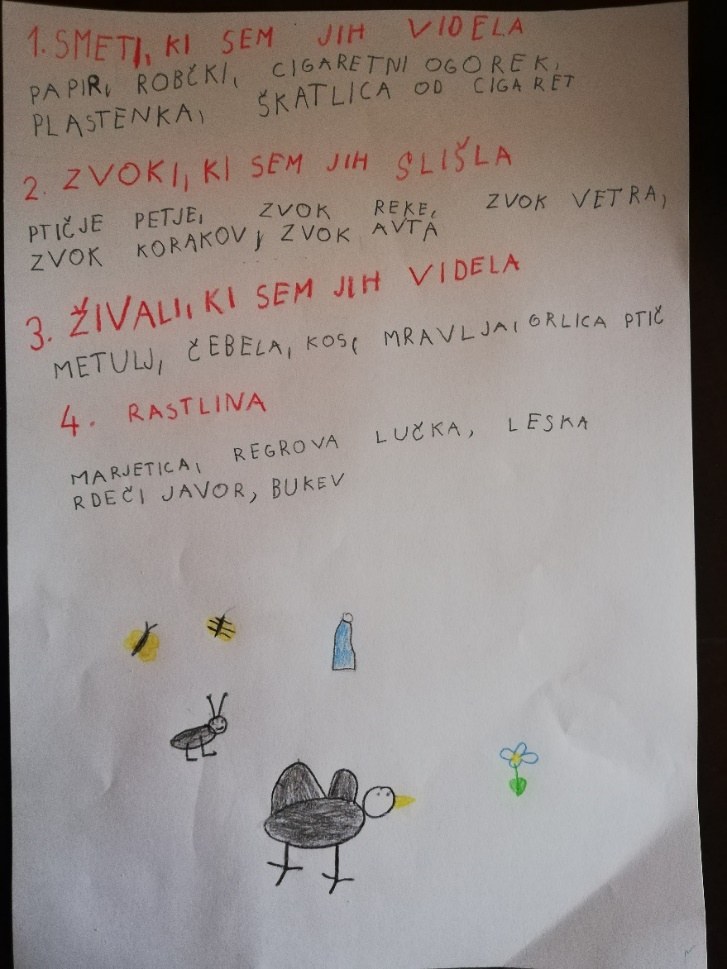 1. SMETI, KI SEM JIH VIDELA
PAPIR, ROBČKI, CIGARETNI OGOREK,
PLASTENKA, ŠKATLICA OD CIGARET
2. ZVOKI, KI SEM JIH SLIŠLA
PTIČJE PETJE, ZVOK REKE, ZVOK VETRA,
ZVOK KORAKOV, ZVOK AVTA
3. ŽIVALI, KI SEM JIH VIDELA
METULJ, ČEBELA, KOS, MRAVLJA, GRLICA PTIČ
4. RASTLINA
MARJETICA, REGROVA LUČKA, LESKA
RDEČI JAVOR, BUKEV